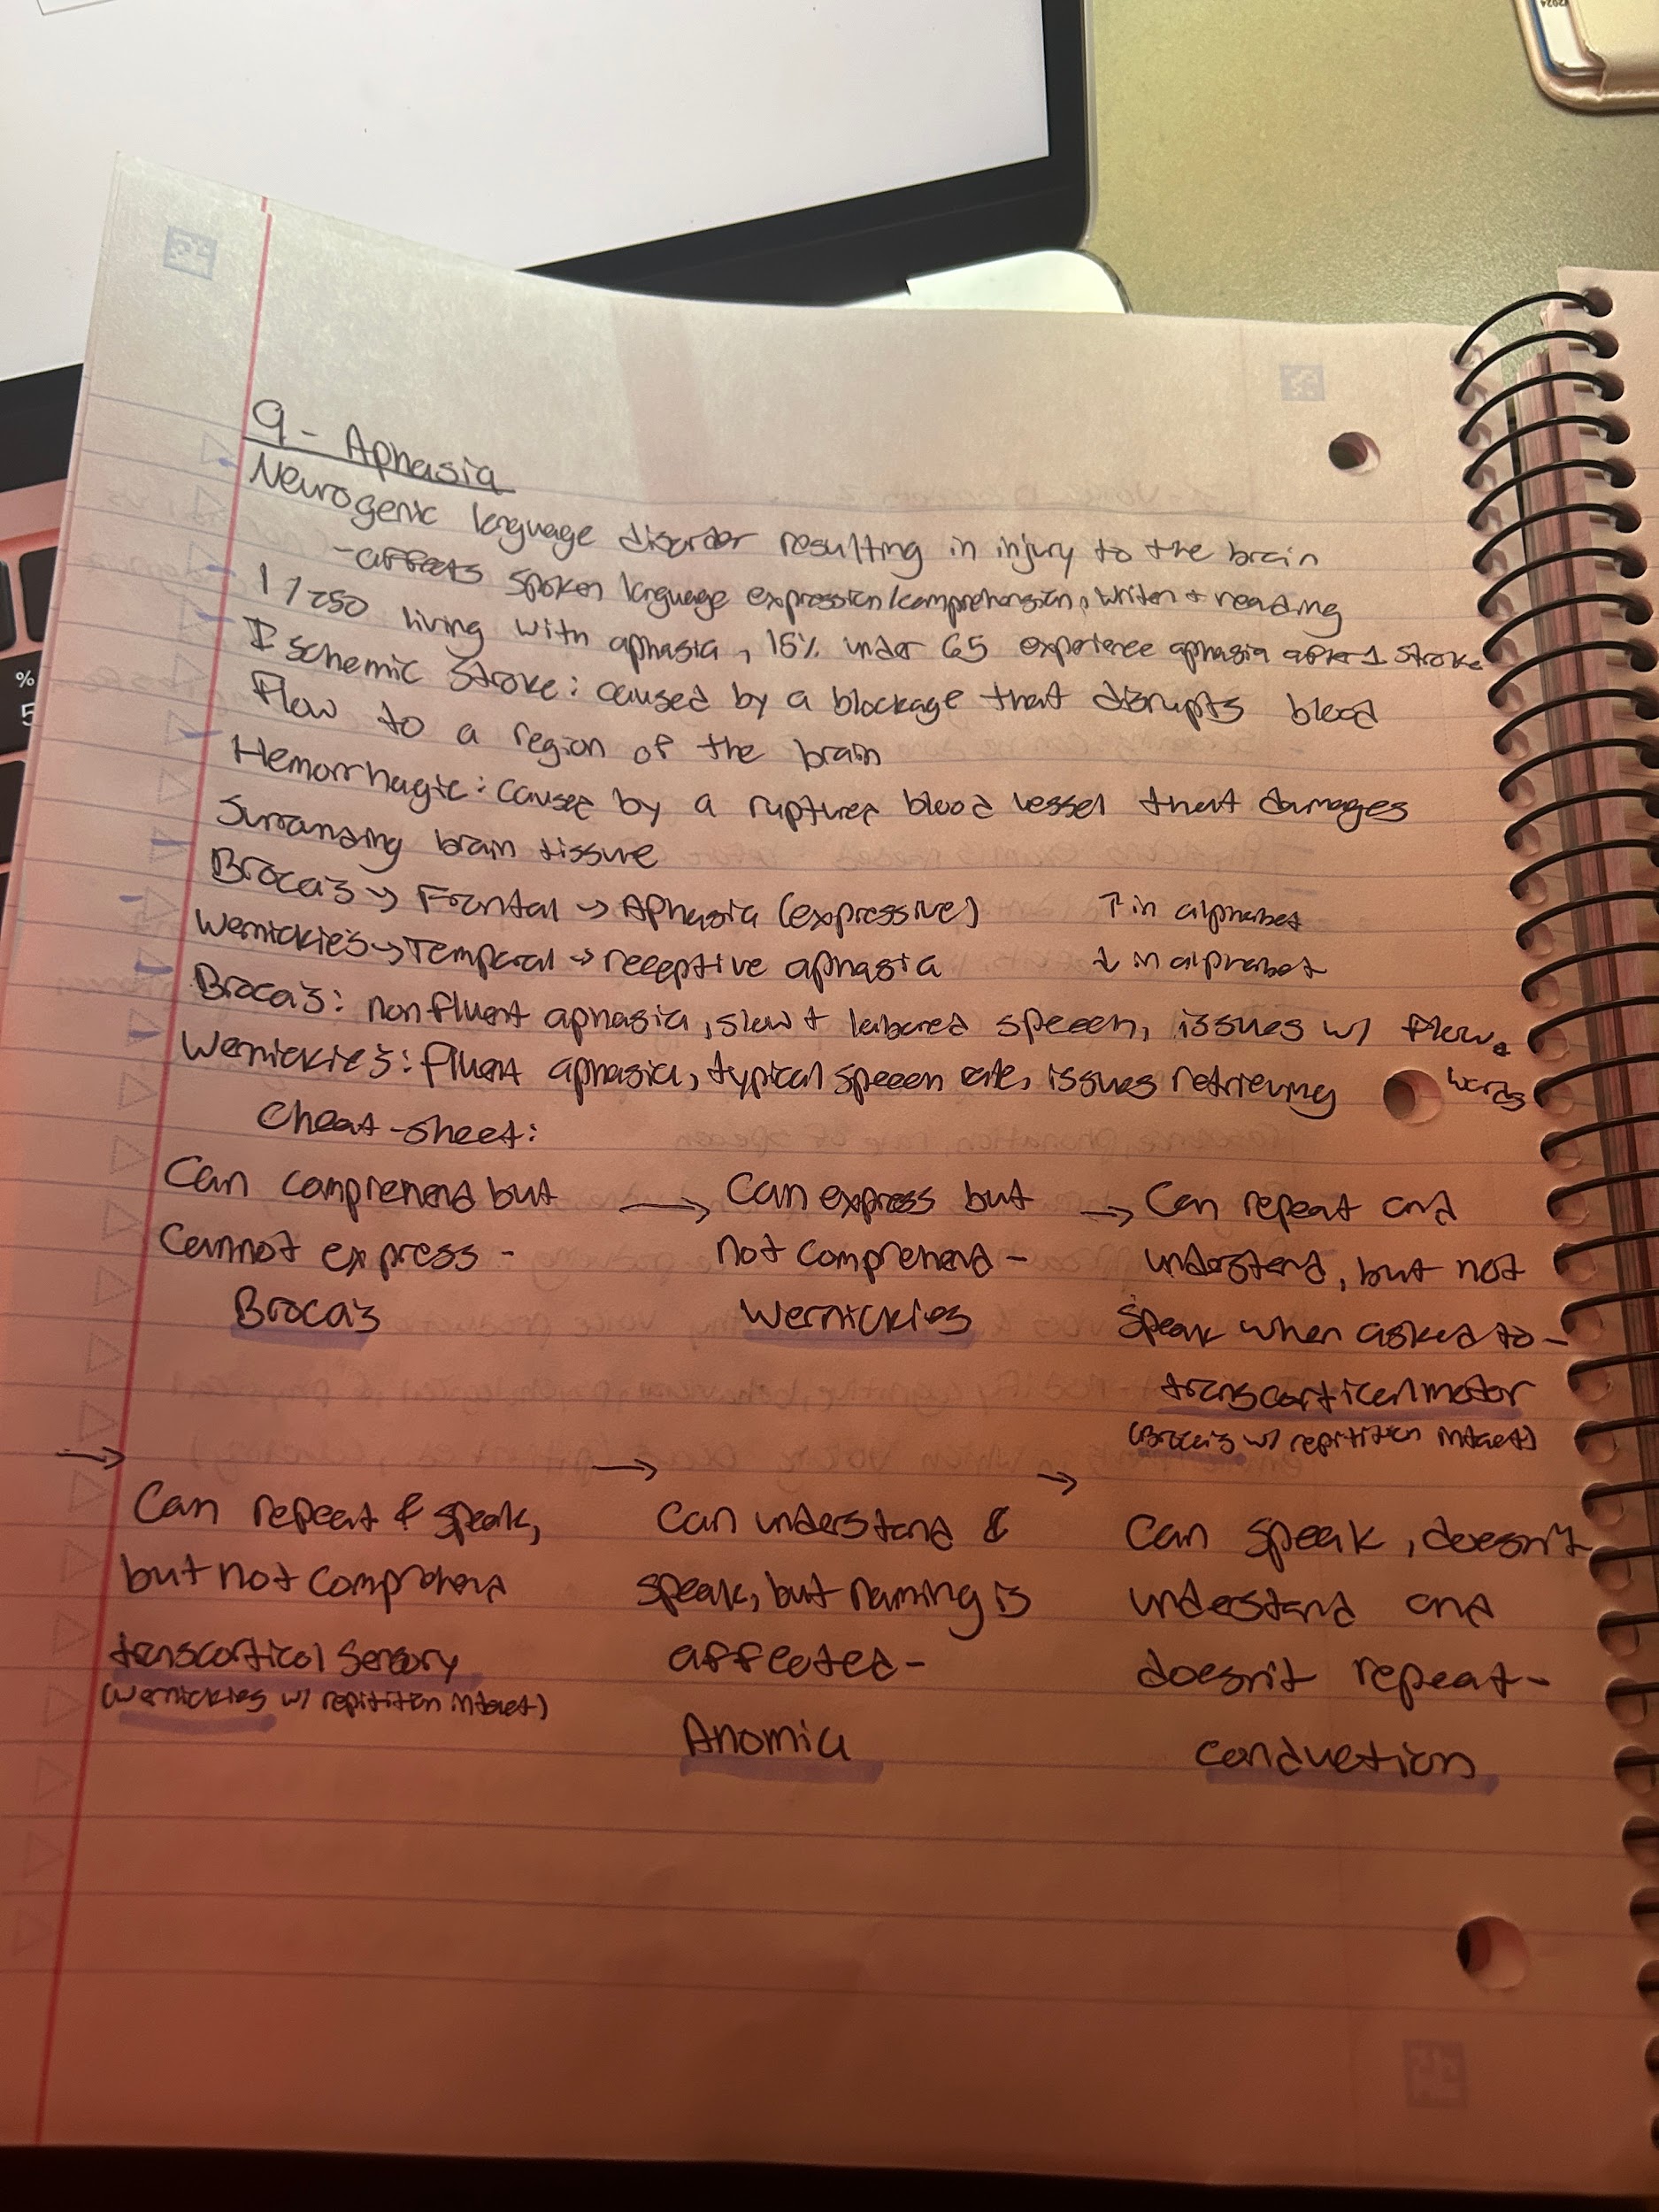 9 - Aphasia
Neurogenic language disorder resulting in injury to the brain
- affects spoken language expression/comprehension, writen + reading
1/250 living with aphasia, 15% under 65 experience aphasia after 1 stroke
Ischemic Stroke: caused by a blockage that disrupts blood
flow to a region of the brain
Hemorrhagic: caused by a ruptured blood vessel that damages
surronding brain tissue
Broca's → Frontal → Aphasia (expressive) ↑ in alphabet
Wernickie's → Temporal → receptive aphasia ↓ in alphabet
Broca's: nonfluent aphasia, slow + labored speech, issues w/ flow.
Wernickie's: fluent aphasia, typical speech rate, issues retrieving words
Cheat-sheet:
Can comprehend but
cannot express -
Broca's
→ Can express but
not comprehend -
Wernickies
→ Can repeat and
understand, but not
speak when asked to -
transcortical motor
(Broca's w/ repitition intact)
→
Can repeat & speak,
but not comprehend
transcortical sensory
(Wernickies w/ repitition intact)
→
Can understand &
speak, but naming is
affected -
Anomia
→
Can speak, doesn't
understand and
doesn't repeat -
conduction
%
5
2024